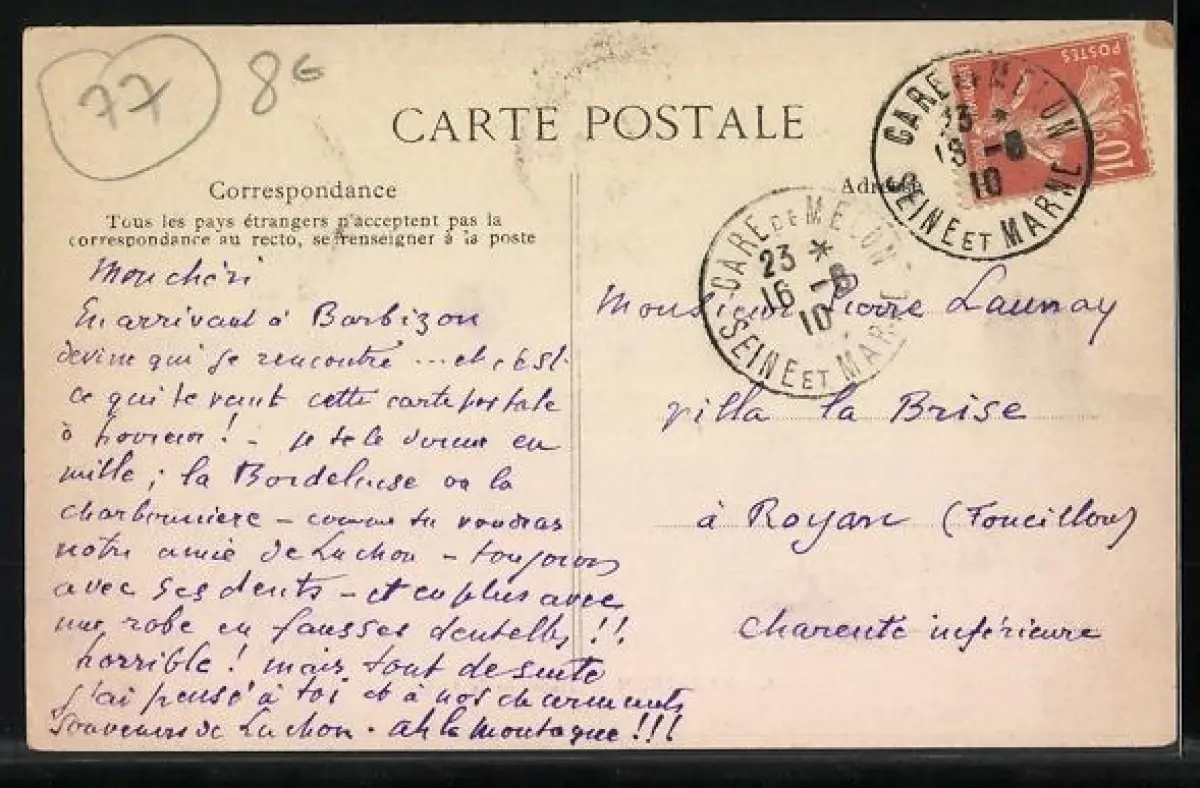 77
8€
CARTE POSTALE
POSTES
10c
GARE DE MELUN
23 *
16 -8
10
SEINE ET MARNE
GARE DE MELUN
23 *
16 -8
10
SEINE ET MARNE
Correspondance
Tous les pays étrangers n'acceptent pas la
correspondance au recto, se renseigner à la poste
Adresse
Mon chéri
En arrivant à Barbizon
devine qui je rencontre ... et c'est
ce qui te vaut cette carte postale
o horreur ! - je te le donne en
mille ; la Bordeluse ou la
charbonnière - comme tu voudras
notre amie de Luchon - toujours
avec ses dents - et en plus avec
une robe en fausses dentelles !!
horrible ! mais tout de suite
j'ai pensé à toi et à nos charmants
souvenirs de Luchon. Ah la montagne !!!
Monsieur Pierre Launay
villa la Brise
à Royan (Foncillon)
Charente inférieure